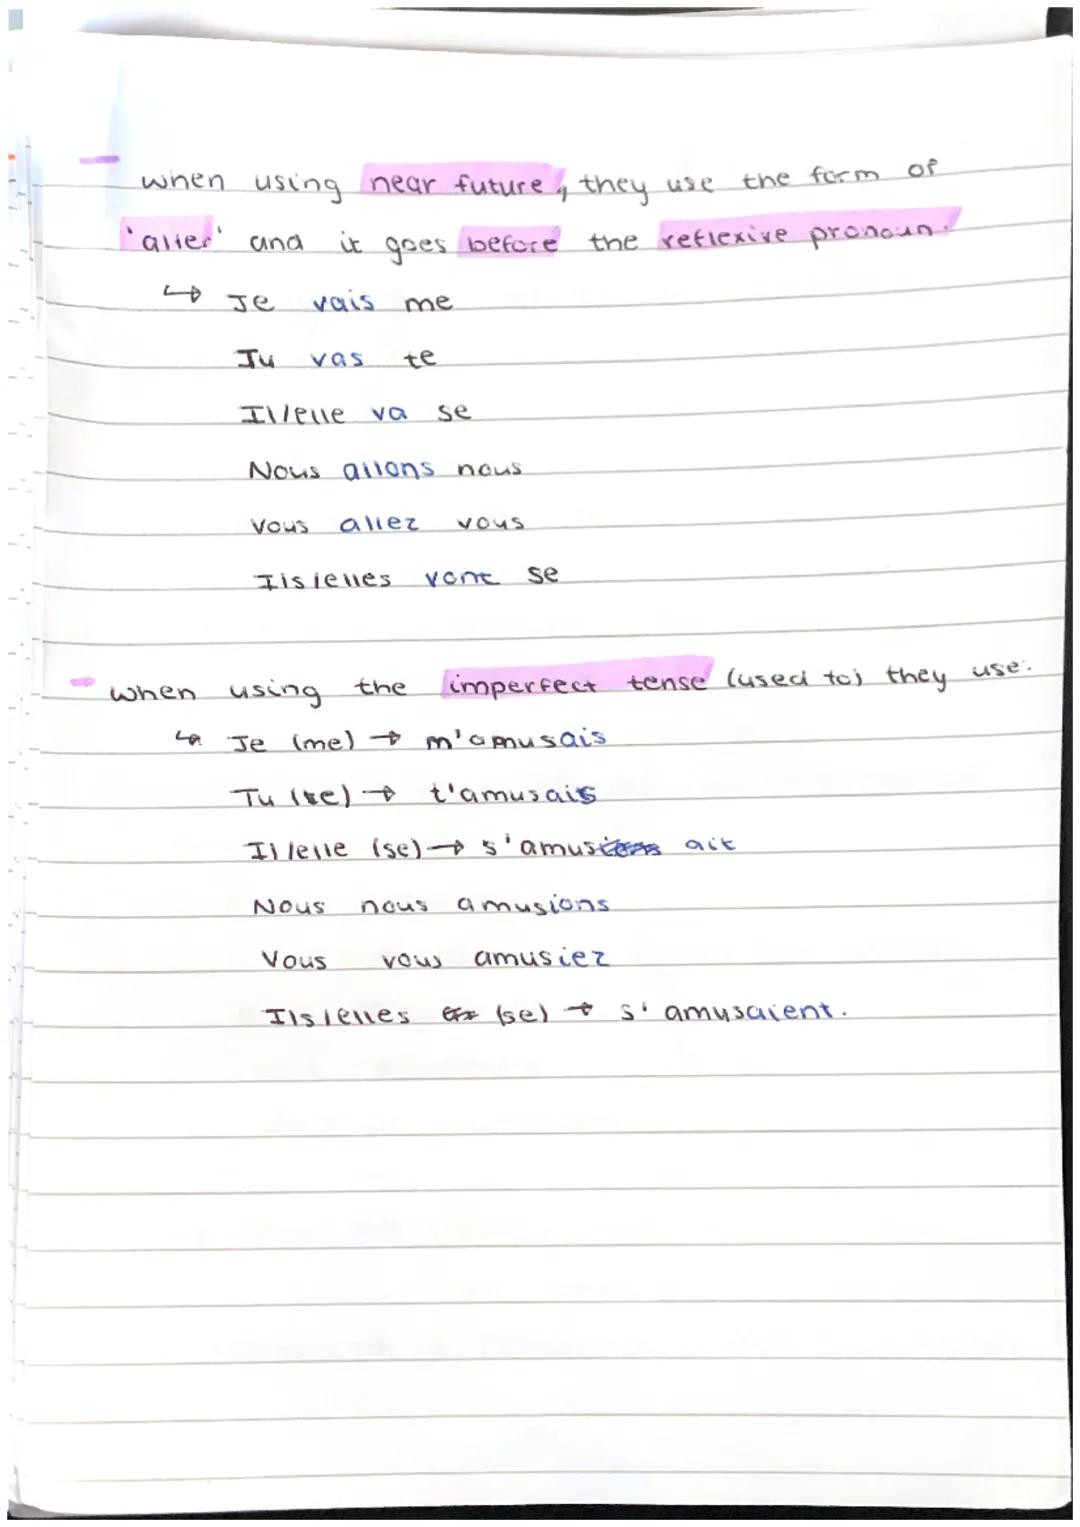 when using near future, they use the form of
'aller' and it goes before the reflexive pronoun.
↳ Je vais me
Tu vas te
Il/elle va se
Nous allons nous
Vous allez vous
Ils/elles vont se
- When using the imperfect tense (used to) they use:
↳ Je (me) → m'amusais
Tu (te) → t'amusais
Il/elle (se) → s'amus ait
Nous nous amusions
Vous vous amusiez
Ils/elles (se) → s'amusaient.